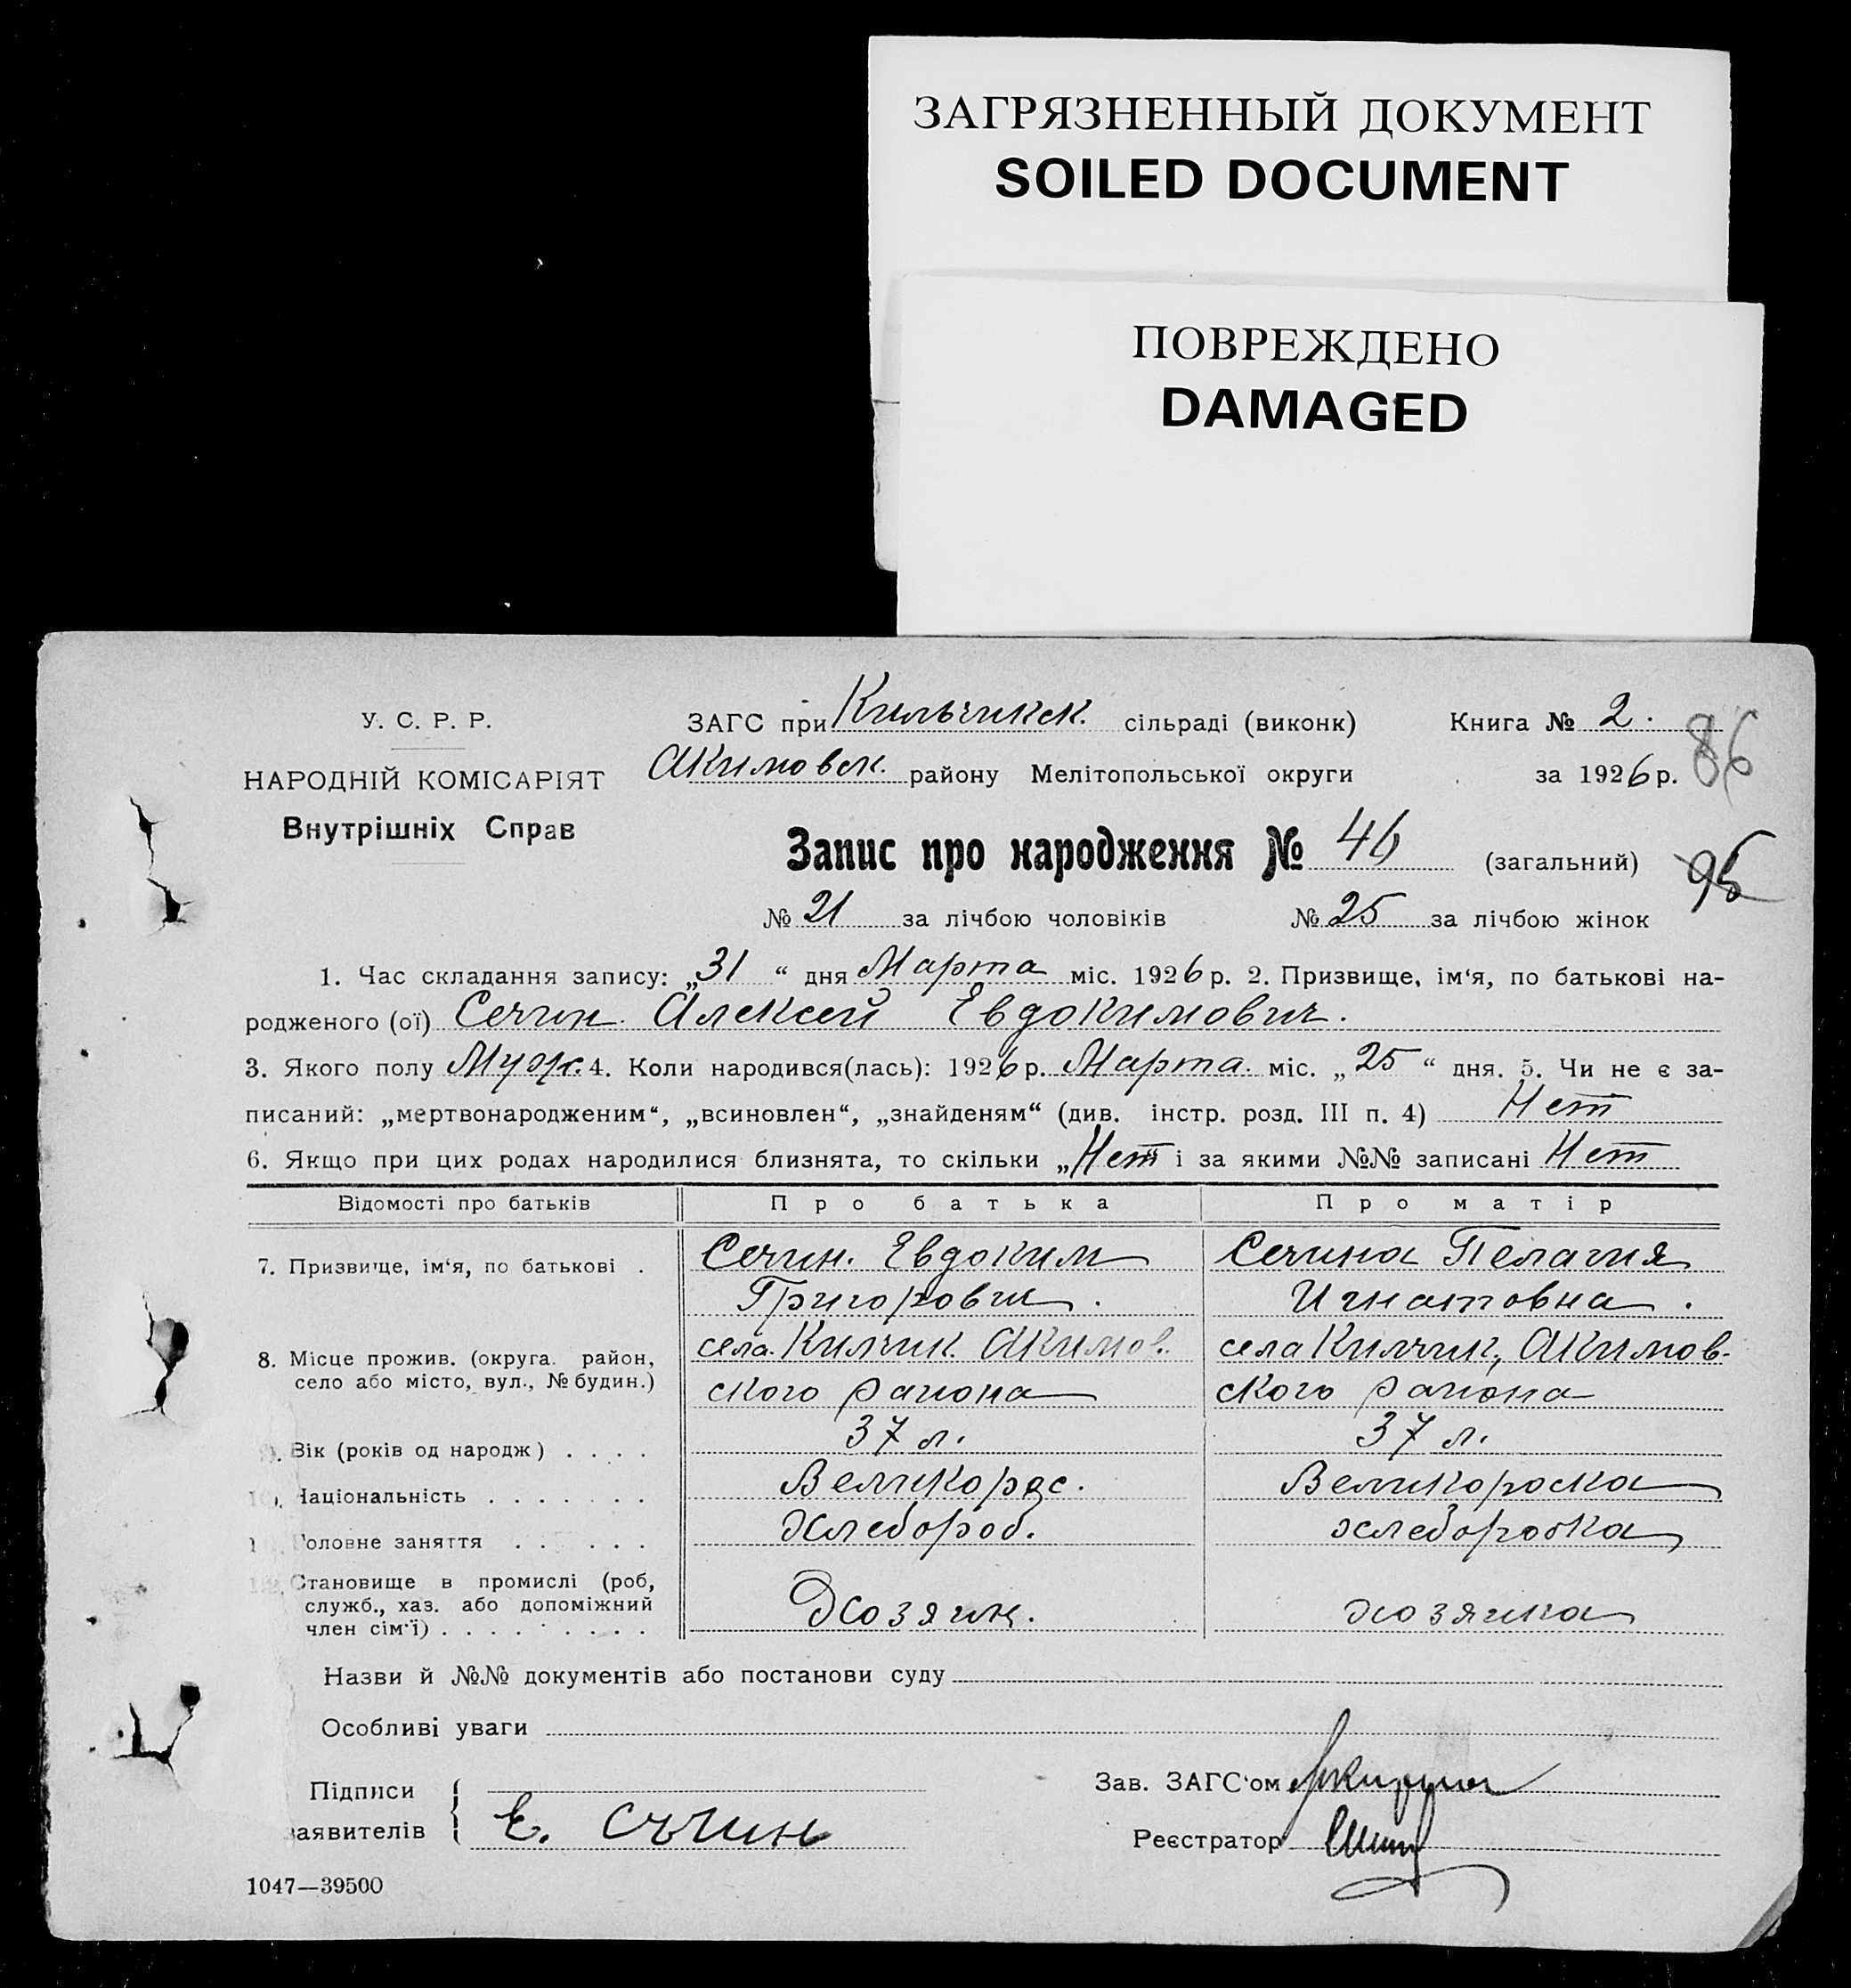 ЗАГРЯЗНЕННЫЙ ДОКУМЕНТ
SOILED DOCUMENT
ПОВРЕЖДЕНО
DAMAGED
У. С. Р. Р.
НАРОДНІЙ КОМІСАРІЯТ
Внутрішніх Справ
ЗАГС при Кильчикск. сільраді (виконк) Книга № 2.
86
Акимовск. району Мелітопольської округи за 1926 р.
Запис про народження № 46 (загальний)
95
№ 21 за лічбою чоловіків № 25 за лічбою жінок
1. Час складання запису: „31“ дня Марта міс. 1926 р. 2. Призвище, ім‘я, по батькові на-
родженого (ої) Сечин Алексей Евдокимович.
3. Якого полу Муж. 4. Коли народився(лась): 1926 р. Марта. міс. „25“ дня. 5. Чи не є за-
писаний: „мертвонародженим“, „всиновлен“, „знайденям“ (див. інстр. розд. III п. 4) Нет
6. Якщо при цих родах народилися близнята, то скільки „Нет і за якими №№ записані Нет
Відомості про батьків Про батька Про матір
7. Призвище, ім‘я, по батькові . Сечин. Евдоким Сечина Пелагия
Григорович. Игнатовна.
8. Місце прожив. (округа. район, села. Килчик Акимов. села Килчик, Акимов-
село або місто, вул., № будин.) ского района ского района
9. Вік (років од народж) . . . . 37 л. 37 л.
10. Національність . . . . . . . Великорос. Великороска
Головне заняття . . . . . . хлебороб. хлеборобка
12. Становище в промислі (роб,
служб., хаз. або допоміжний Хозяин. хозяика
член сім‘ї) . . . . . . . . .
Назви й №№ документів або постанови суду
Особливі уваги
Підписи Зав. ЗАГС‘ом
заявителів Е. Сѣчин Реєстратор
1047—39500